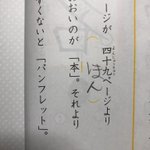 ージが 四十九ページより
ほん
おいのが「本」。それより
すくないと「パンフレット」。